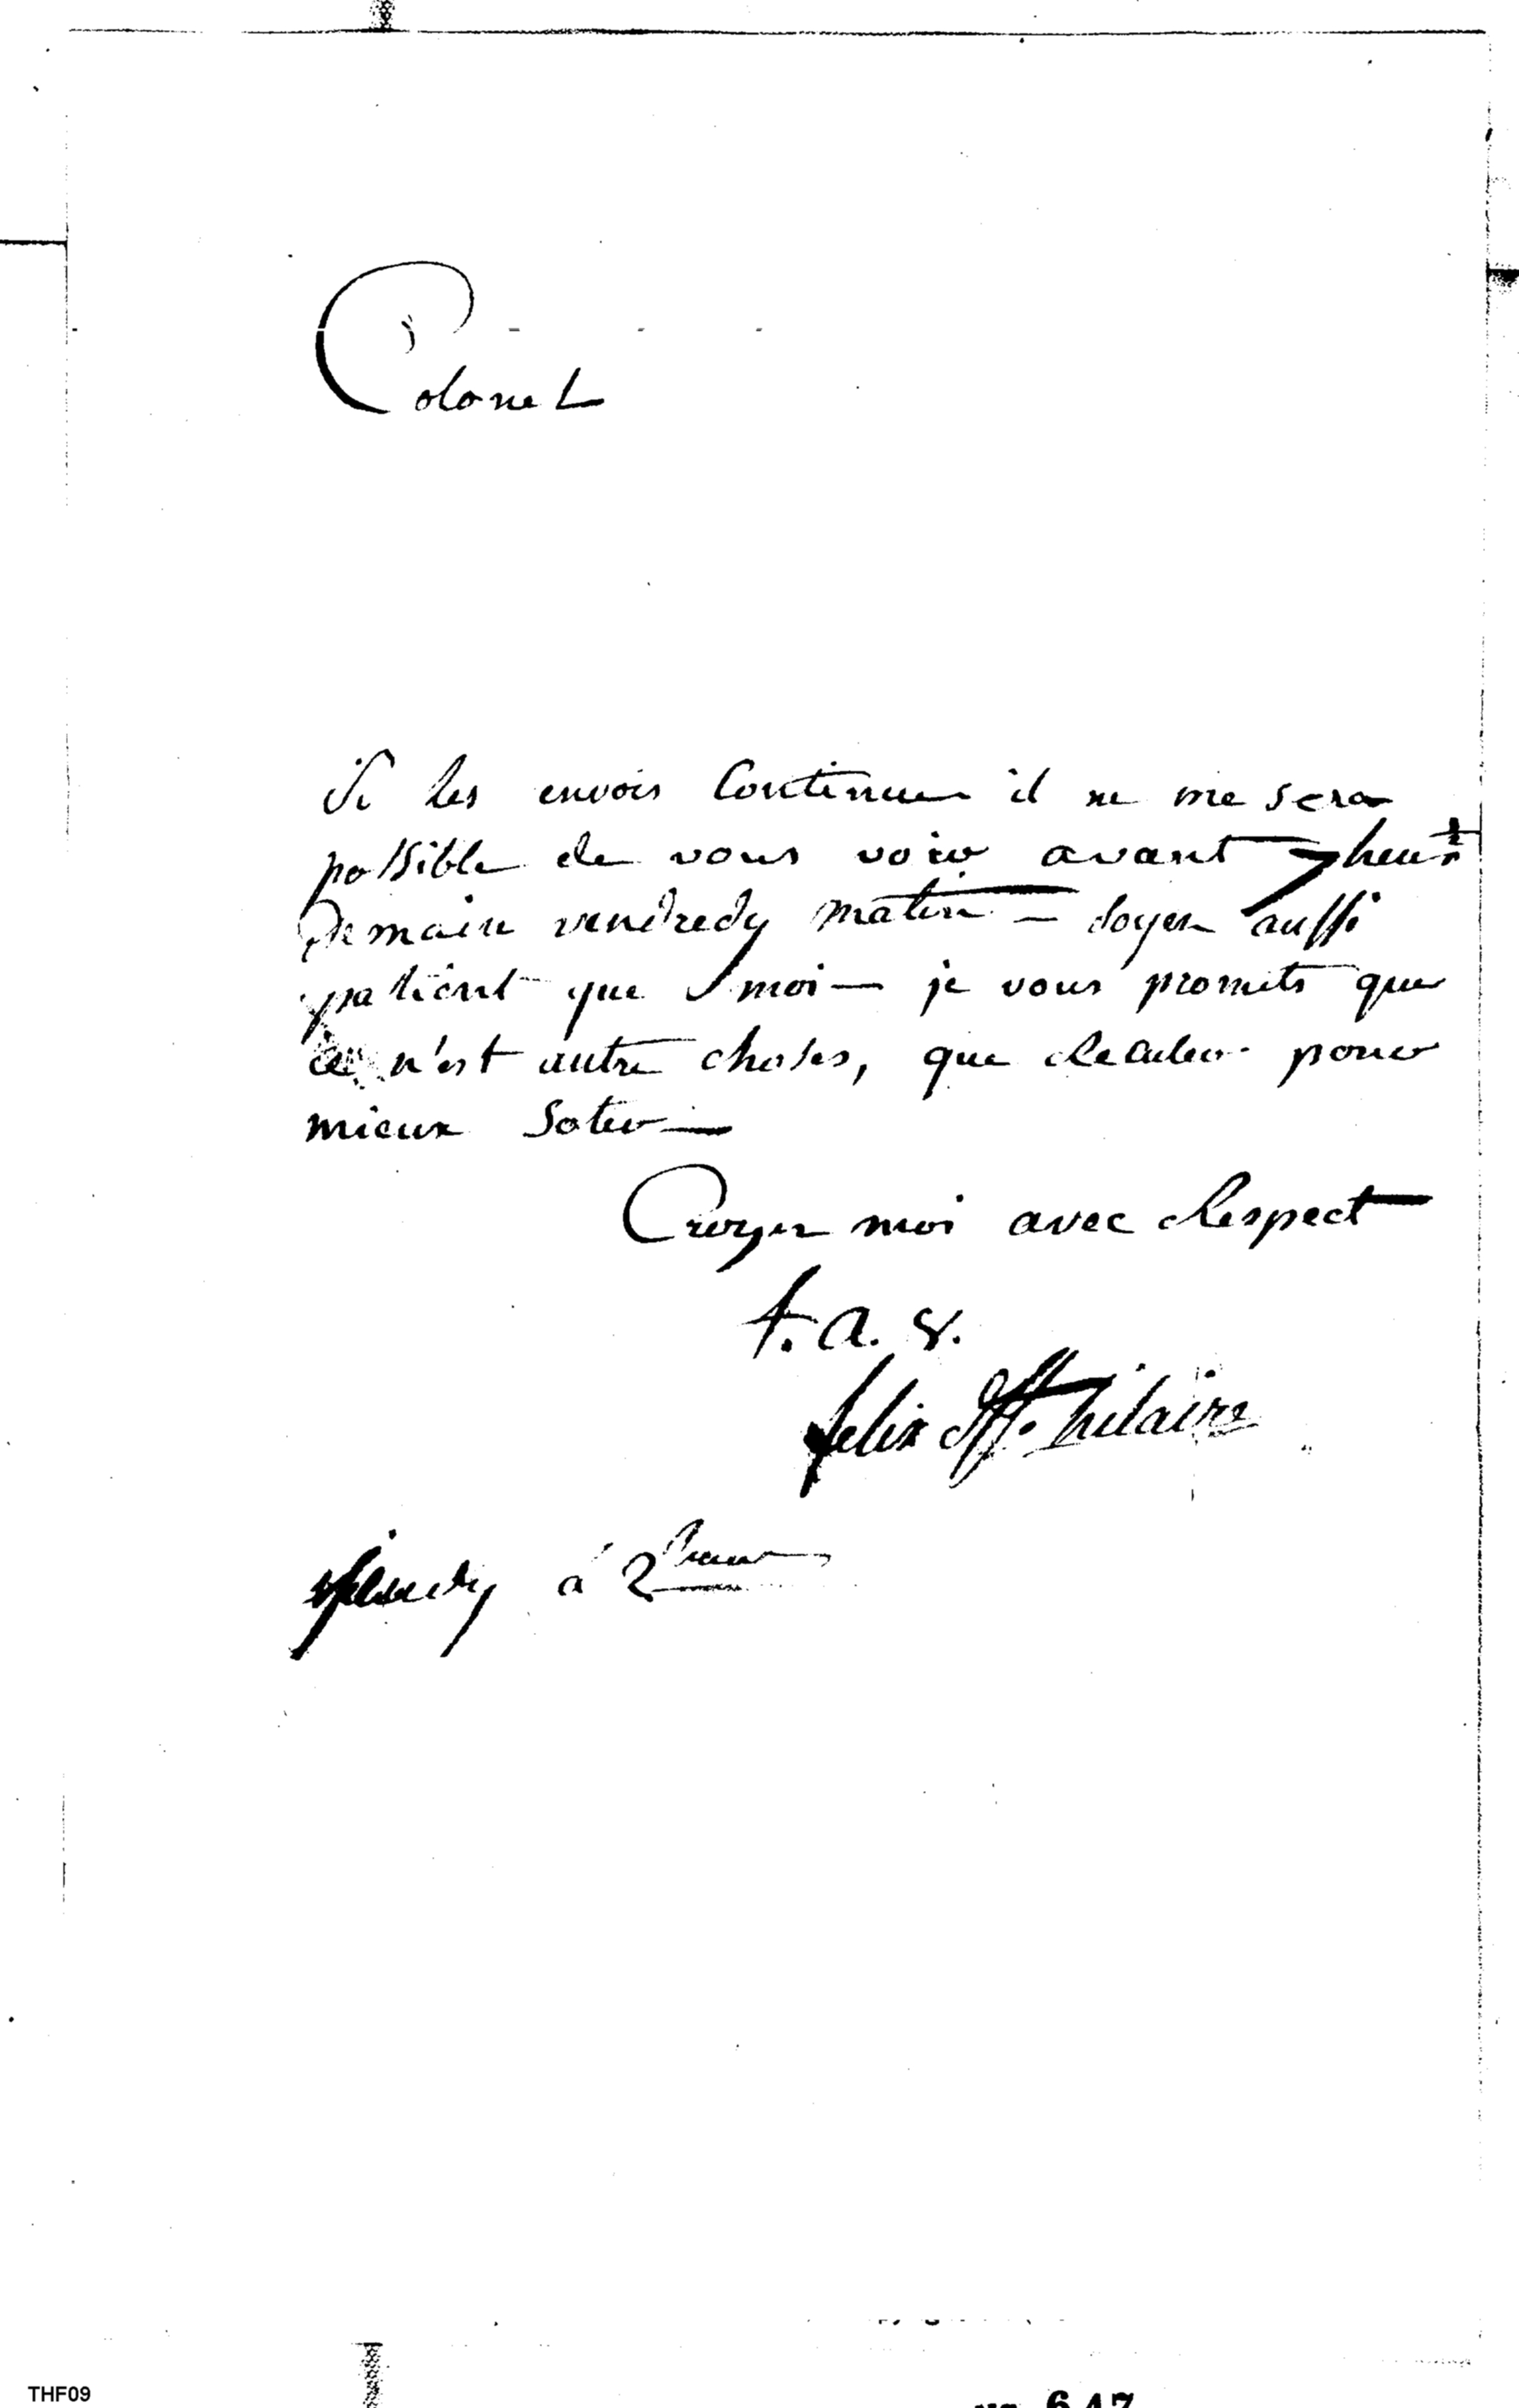 Colonel
Si les envois Continue il ne me sera
possible de vous voir avant 7 heures
Demain vendredy matin — soyer aussi
patient que moi — je vous promets que
ce n'est autre choses, que Reculer pour
mieux Soter —
Croyer moi avec Respect
t. a. v.
felix St. hilaire
Jeudy à 2 heures
THF09
647